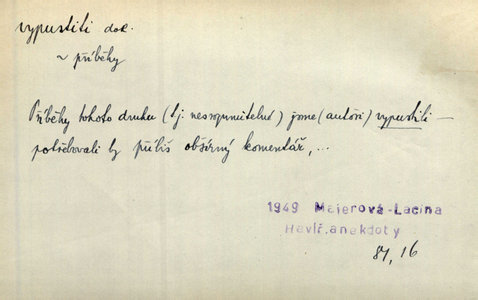 vypustiti dok.
~ příběhy
Příběhy tohoto druhu (tj nesrozumitelné) jsme (autoři) vypustili —
potřebovali by příliš obšírný komentář, ...
1949 Majerová-Lacina
Havíř.anekdoty
81, 16